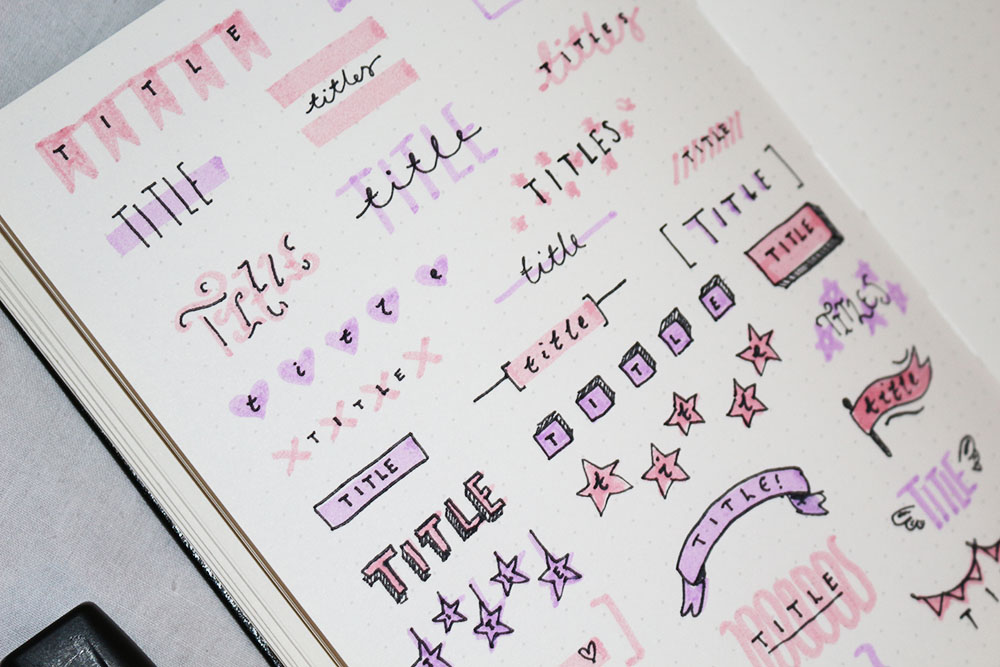 TITLE
titles
titles
TITLES
TITLE
TITLE
title
TITLES
TITLE
[TITLE]
TITLE
titles
TITLES
title
title
TITLE
[title]
TITLE
TITLES
title
title
TITLE
TITLE
TITLE!
TITLE
TITLE
TI